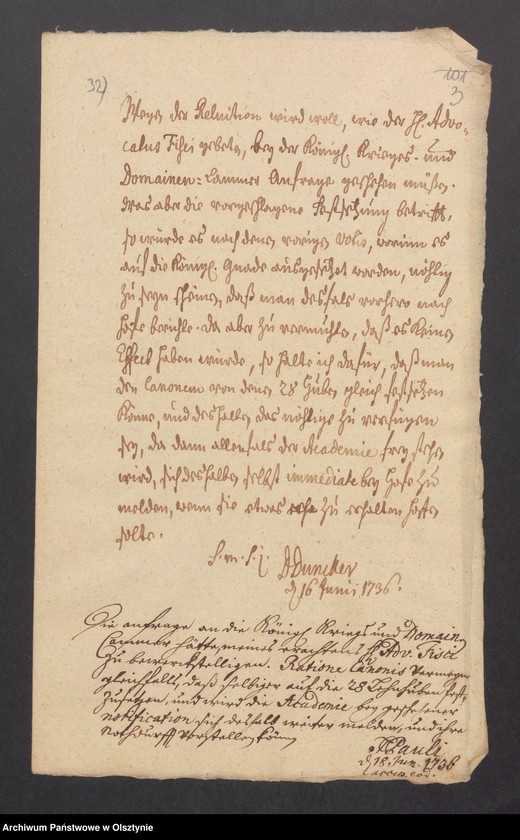 32)
101
3
Wegen der Reluition wird woll, wie der H. Advo-
catus Fisci gebeten, bey der Königl. Krieges- und
Domainen-Cammer Anfrage geschehen müßen.
Was aber die vorgeschlagene Festsetzung betrifft,
so würde es nach denen vorigen Votis, worinn es
auf die Königl. Gnade ausgesetzet worden, nöhtig
zu seyn scheinen, daß man desfals vorhero nach
Hofe berichte. Da aber zu vermuhten, daß es keinen
Effect haben würde, so halte ich dafür, daß man
den Canonem von denen 28 Huben gleich festsetzen
könne, und deshalben das nöhtige zu verfügen
sey, da dann allenfals der Academie frey stehen
wird, sich deshalben selbst immediate bey Hofe zu
melden, wenn sie etwas zu erhalten hoffen
solte.
S. m. S. j. Duncker
d. 16 Junii 1736.
Die anfrage an die Königl. Kriegs und Domain
Cammer hätte meines erachtens H. Adv. Fisci
zu bewerkstelligen. Ratione Canonis vermeyne
gleichfalls, daß selbiger auf die 28 Huben fest
zusetzen, und wird die Academie bey geschehener
notification sich deshalb weiter melden, und ihre
Nothdurfft vorstellen können
Pauli
d. 18. Jun. 1736
Archiwum Państwowe w Olsztynie